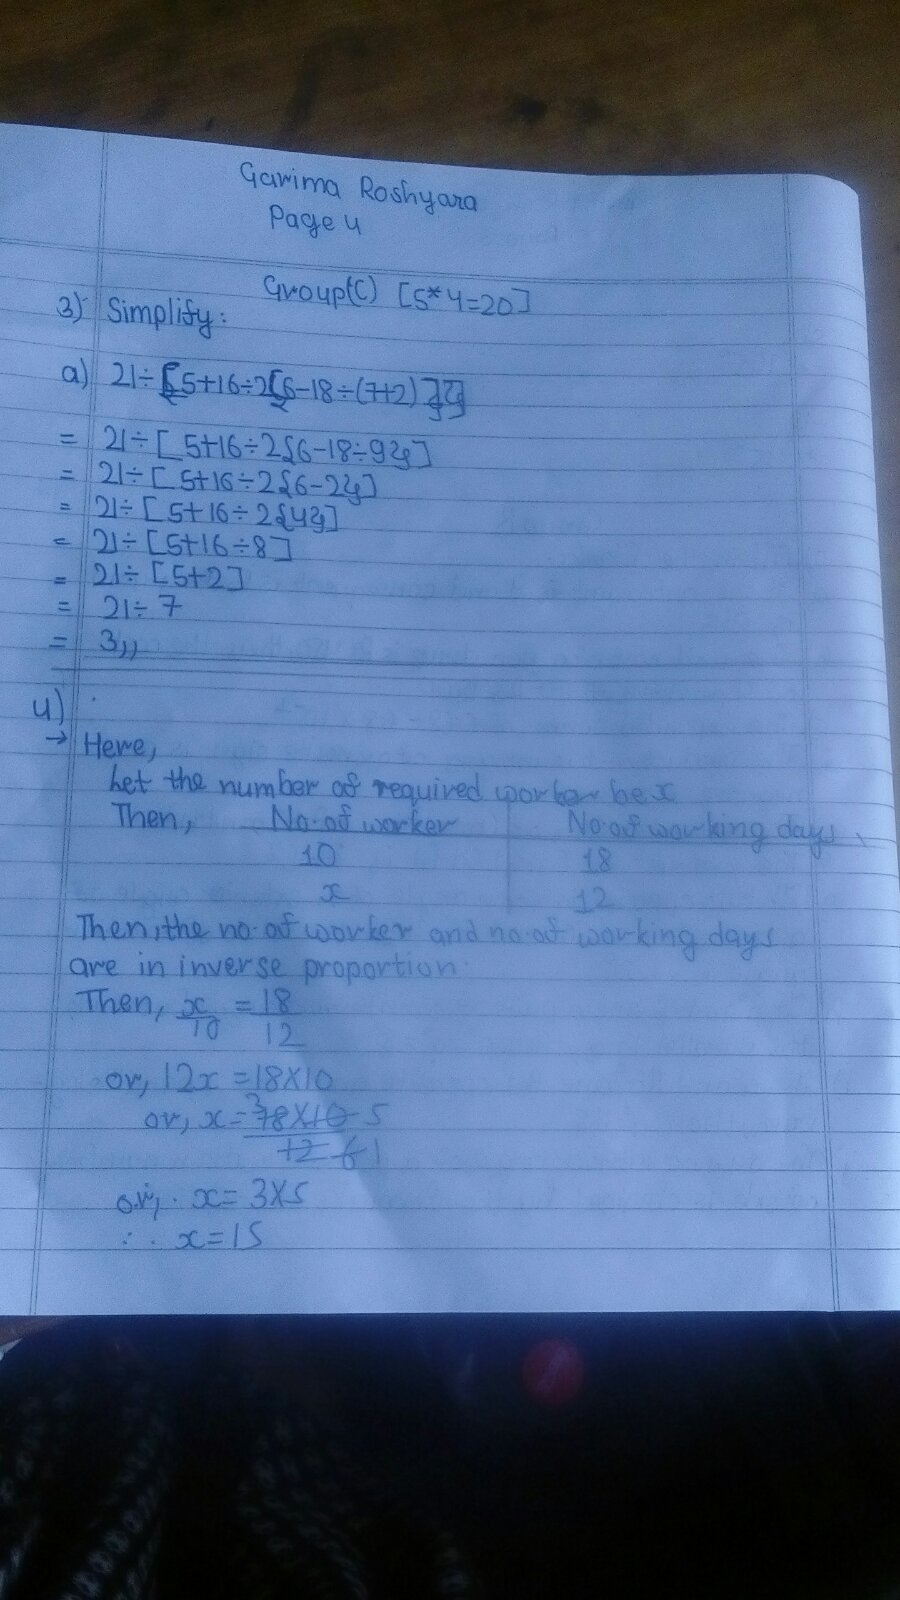 Garima Roshyara
Page 4
Group(C) [5*4=20]
3) Simplify:
a) 21÷[5+16÷2{6-18÷(7+2)}]
= 21÷[5+16÷2{6-18÷9}]
= 21÷[5+16÷2{6-2}]
= 21÷[5+16÷2{4}]
= 21÷[5+16÷8]
= 21÷[5+2]
= 21÷7
= 3,,
4)
→ Here,
Let the number of required worker be x
Then, No.of worker No.of working days
10 18
x 12
Then, the no.of worker and no.of working days
are in inverse proportion.
Then, x/10 = 18/12
or, 12x = 18×10
or, x = 18×10/12
3 5
6 1
or, x = 3×5
∴ x = 15